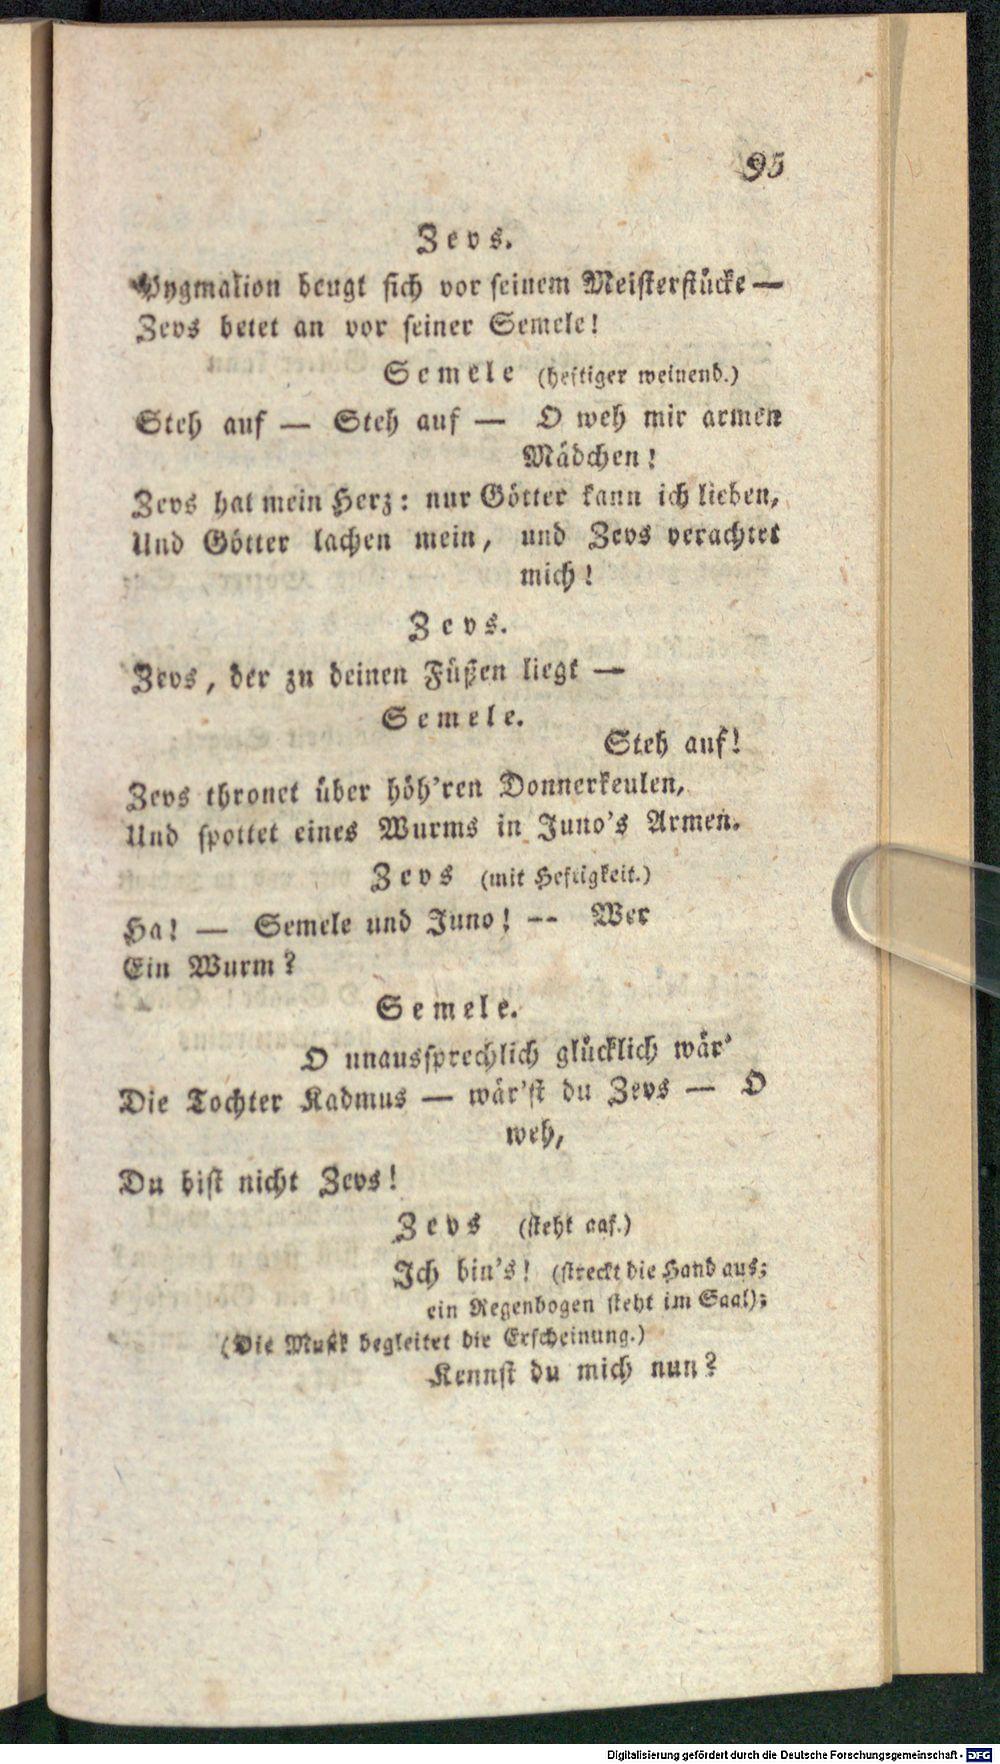 95
Zevs.
Pygmalion beugt sich vor seinem Meisterstücke —
Zevs betet an vor seiner Semele!
Semele (heftiger weinend.)
Steh auf — Steh auf — O weh mir armen
Mädchen!
Zevs hat mein Herz: nur Götter kann ich lieben,
Und Götter lachen mein, und Zevs verachtet
mich!
Zevs.
Zevs, der zu deinen Füßen liegt —
Semele.
Steh auf!
Zevs thronet über höh'ren Donnerkeulen,
Und spottet eines Wurms in Juno's Armen.
Zevs (mit Heftigkeit.)
Ha! — Semele und Juno! -- Wer
Ein Wurm?
Semele.
O unaussprechlich glücklich wär'
Die Tochter Kadmus — wär'st du Zevs — O
weh,
Du bist nicht Zevs!
Zevs (steht aaf.)
Ich bin's! (streckt die Hand aus;
ein Regenbogen steht im Saal);
(Die Musik begleitet die Erscheinung.)
Kennst du mich nun?
Digitalisierung gefördert durch die Deutsche Forschungsgemeinschaft - DFG